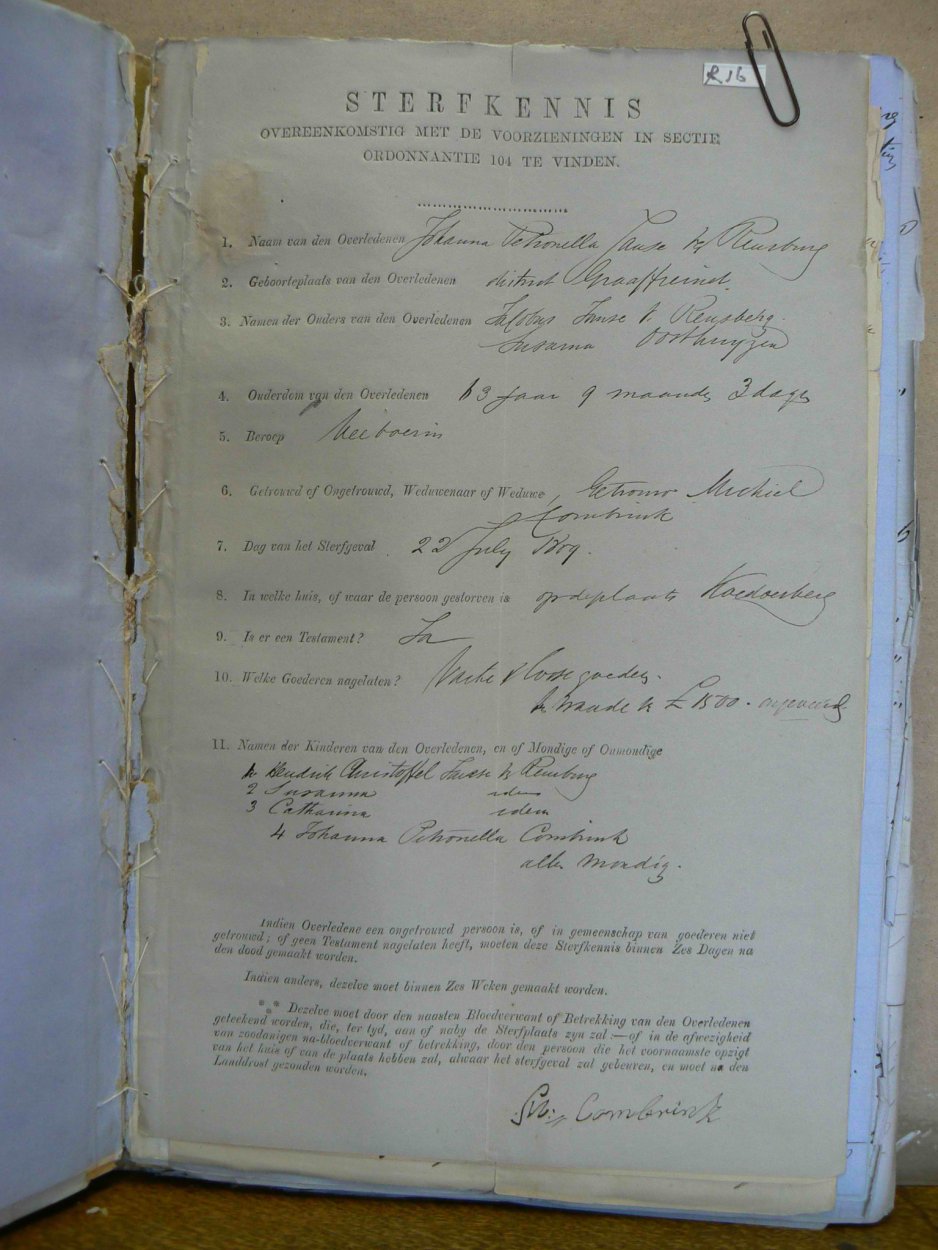 R 16
STERFKENNIS
OVEREENKOMSTIG MET DE VOORZIENINGEN IN SECTIE
ORDONNANTIE 104 TE VINDEN.
1. Naam van den Overledenen Johanna Petronella Janse v Rensburg
2. Geboorteplaats van den Overledenen district Graaffreinet
3. Namen der Ouders van den Overledenen Jacobus Janse v Rensberg
Susanna Oosthuyzen
4. Ouderdom van den Overledenen 63 jaar 9 maande 3 dage
5. Beroep Veeboerin
6. Getrouwd of Ongetrouwd, Weduwenaar of Weduwe, Getrouw Michiel
Combrink
7. Dag van het Sterfgeval 22 July
8. In welke huis, of waar de persoon gestorven is op de plaats Koedoesberg
9. Is er een Testament? Ja
10. Welke Goederen nagelaten? Vaste & losse goedere.
waarde £ 1500.
11. Namen der Kinderen van den Overledenen, en of Mondige of Onmondige
1 Hendrik Christoffel Janse v Rensburg
2 Susanna idem
3 Catharina idem
4 Johanna Petronella Combrink
alle mondig.
Indien Overledene een ongetrouwd persoon is, of in gemeenschap van goederen niet
getrouwd; of geen Testament nagelaten heeft, moeten deze Sterfkennis binnen Zes Dagen na
den dood gemaakt worden.
Indien anders, dezelve moet binnen Zes Weken gemaakt worden.
*** Dezelve moet door den naasten Bloedverwant of Betrekking van den Overledenen
geteekend worden, die, ter tyd, aan of naby de Sterfplaats zyn zal:—of in de afwezigheid
van zoodanigen na-bloedverwant of betrekking, door den persoon die het voornaamste opzigt
van het huis of van de plaats hebben zal, alwaar het sterfgeval zal gebeuren, en moet na den
Landdrost gezonden worden.
Combrink